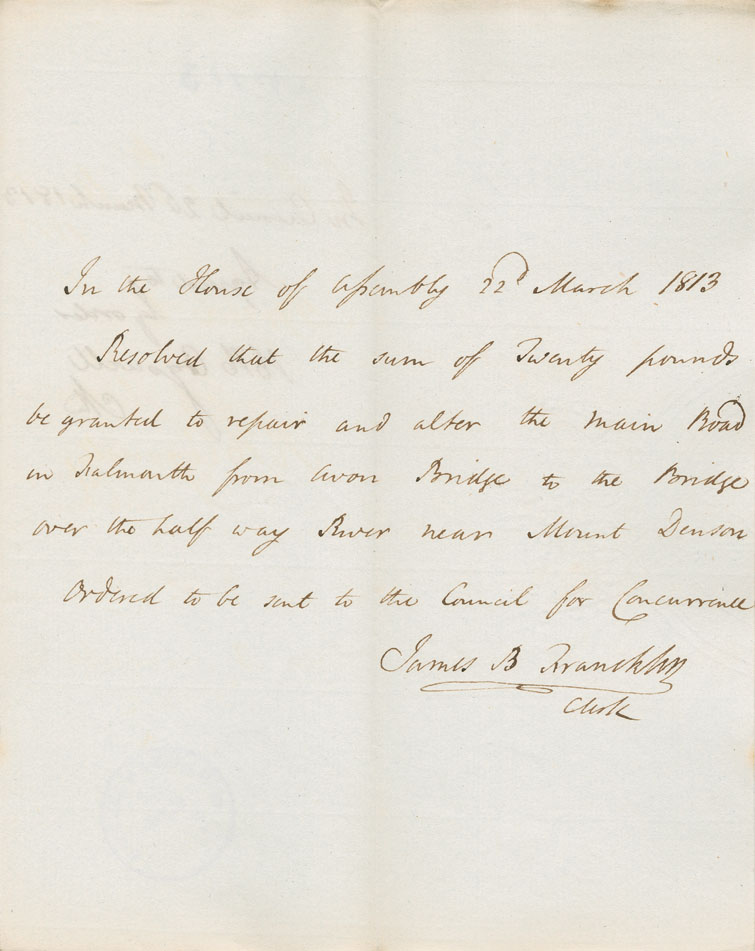 In the House of Assembly 22d March 1813
Resolved that the sum of Twenty pounds
be granted to repair and alter the main Road
in Falmouth from Avon Bridge to the Bridge
over the half way River near Mount Denson
Ordered to be sent to the Council for Concurrence
James B Francklin
Clerk